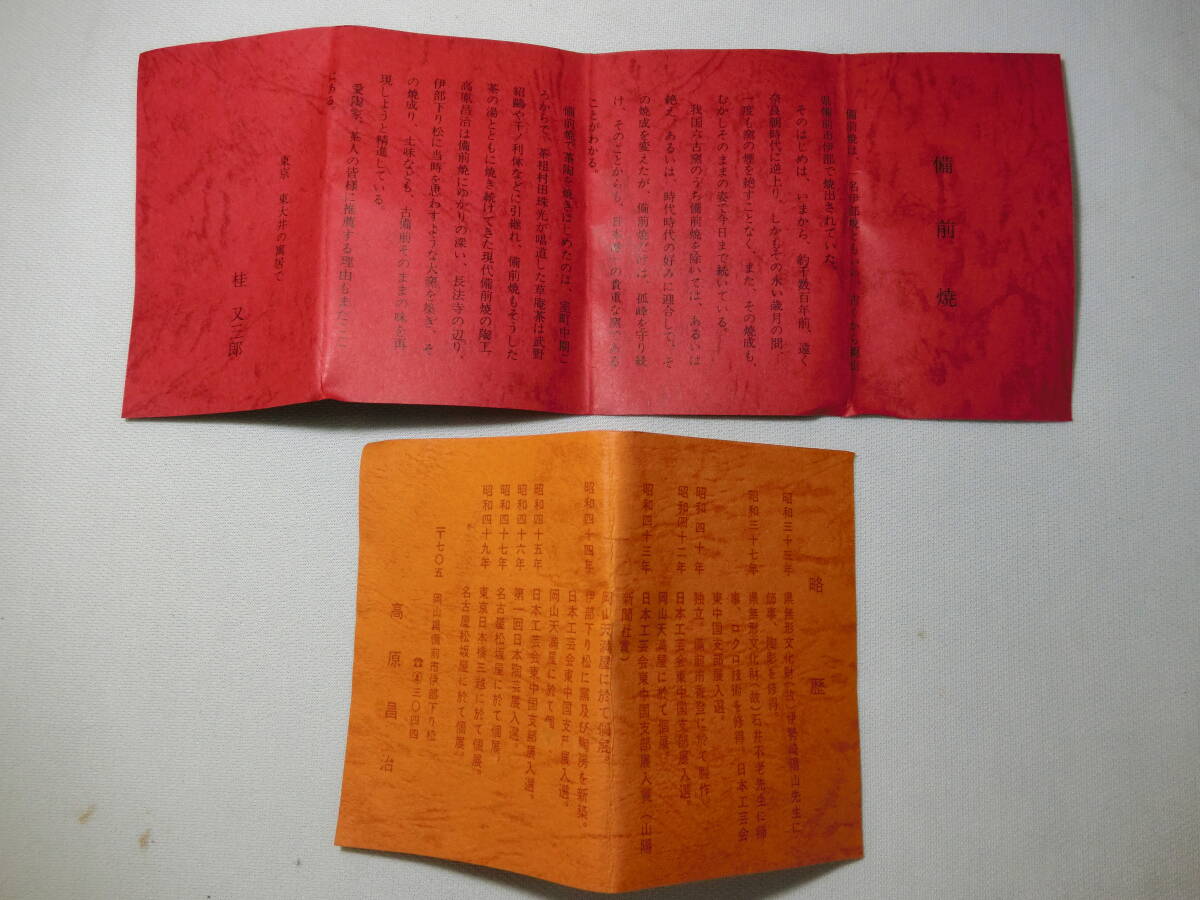 備前焼
備前焼は、一名伊部焼ともいい、古くから
県備前市伊部で焼出されていた。
そのはじめは、いまから、約千数百年前、遠く
奈良朝時代に逆上り、しかもその永い歳月の間、
一度も窯の煙を絶すことなく、また、その焼成も、
むかしそのままの姿で今日まで続いている。
我国六古窯のうち備前焼を除いては、あるいは
絶え、あるいは、時代時代の好みに迎合して、そ
の焼成を変えたが、備前焼だけは、孤峰を守り続
け、そのことからも、日本の貴重な窯である
ことがわかる。
備前焼で茶陶を焼きはじめたのは、室町中期ご
ろからで、茶祖村田珠光が唱道した草庵茶は武野
紹鷗や千ノ利休などに引継れ、備前焼もそうした
茶の湯とともに焼き続けてきた現代備前焼の陶工
高原昌治は備前焼にゆかりの深い、長法寺の辺り、
伊部下り松に当時を思わすような大窯を築き、そ
の焼成り、土味なども、古備前そのままの味を再
現しようと精進している。
愛陶家、茶人の皆様に推薦する理由もまたここ
にある。
東京 東大井の寓居で
桂又三郎
略歴
昭和三十三年 県無形文化財(故)伊勢崎陽山先生に
師事、陶彫を修得。
昭和三十七年 県無形文化財(故)石井不老先生に師
事、ロクロ技術を修得。日本工芸会
東中国支部展入選。
昭和四十年 独立。備前市香登に於て制作。
昭和四十二年 日本工芸会東中国支部展入選。
岡山天満屋に於て個展。
昭和四十三年 日本工芸会東中国支部展入賞(山陽
新聞社賞)
岡山天満屋に於て個展。
昭和四十四年 伊部下り松に窯及び陶房を新築。
日本工芸会東中国支部展入選。
岡山天満屋に於て個展。
昭和四十五年 日本工芸会東中国支部展入選。
昭和四十六年 第一回日本陶芸展入選。
昭和四十七年 名古屋松坂屋に於て個展。
昭和四十九年 東京日本橋三越に於て個展。
名古屋松坂屋に於て個展。
〒七〇五 岡山県備前市伊部下り松
☎④三〇四四
高原昌治